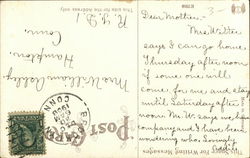 Dear Mother—
Mrs. Witter
says I can go home
Thursday after noon
if some one will
come for me and stay
until Saturday after
noon. Mr. W. says we have
company and I have been
wondering who. Lovingly
For Writing Messages
POST CARD
This side for the Address only
Mrs William
Hampton,
Conn.
R.F.D. 1
CONN